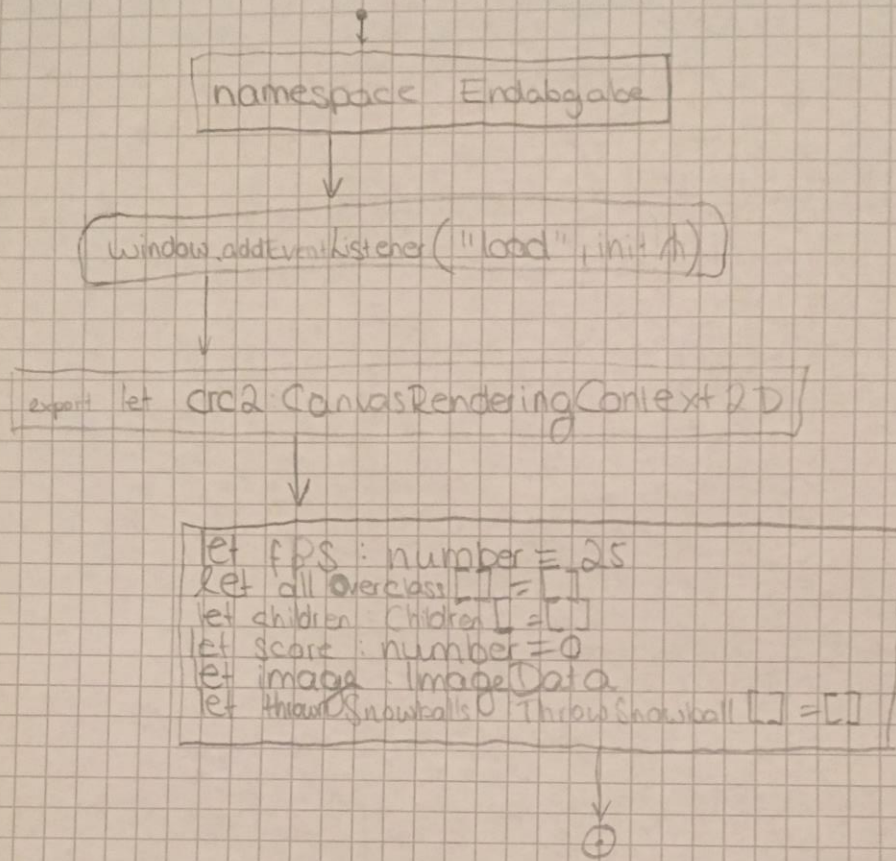 namespace Endabgabe
window.addEventListener("load", init)
export let crc2: CanvasRenderingContext2D
let fps : number = 25
let all Overclass[] = []
let children Children[] = []
let score : number = 0
let image : ImageData
let Snowballs ThrowSnowball [] = []